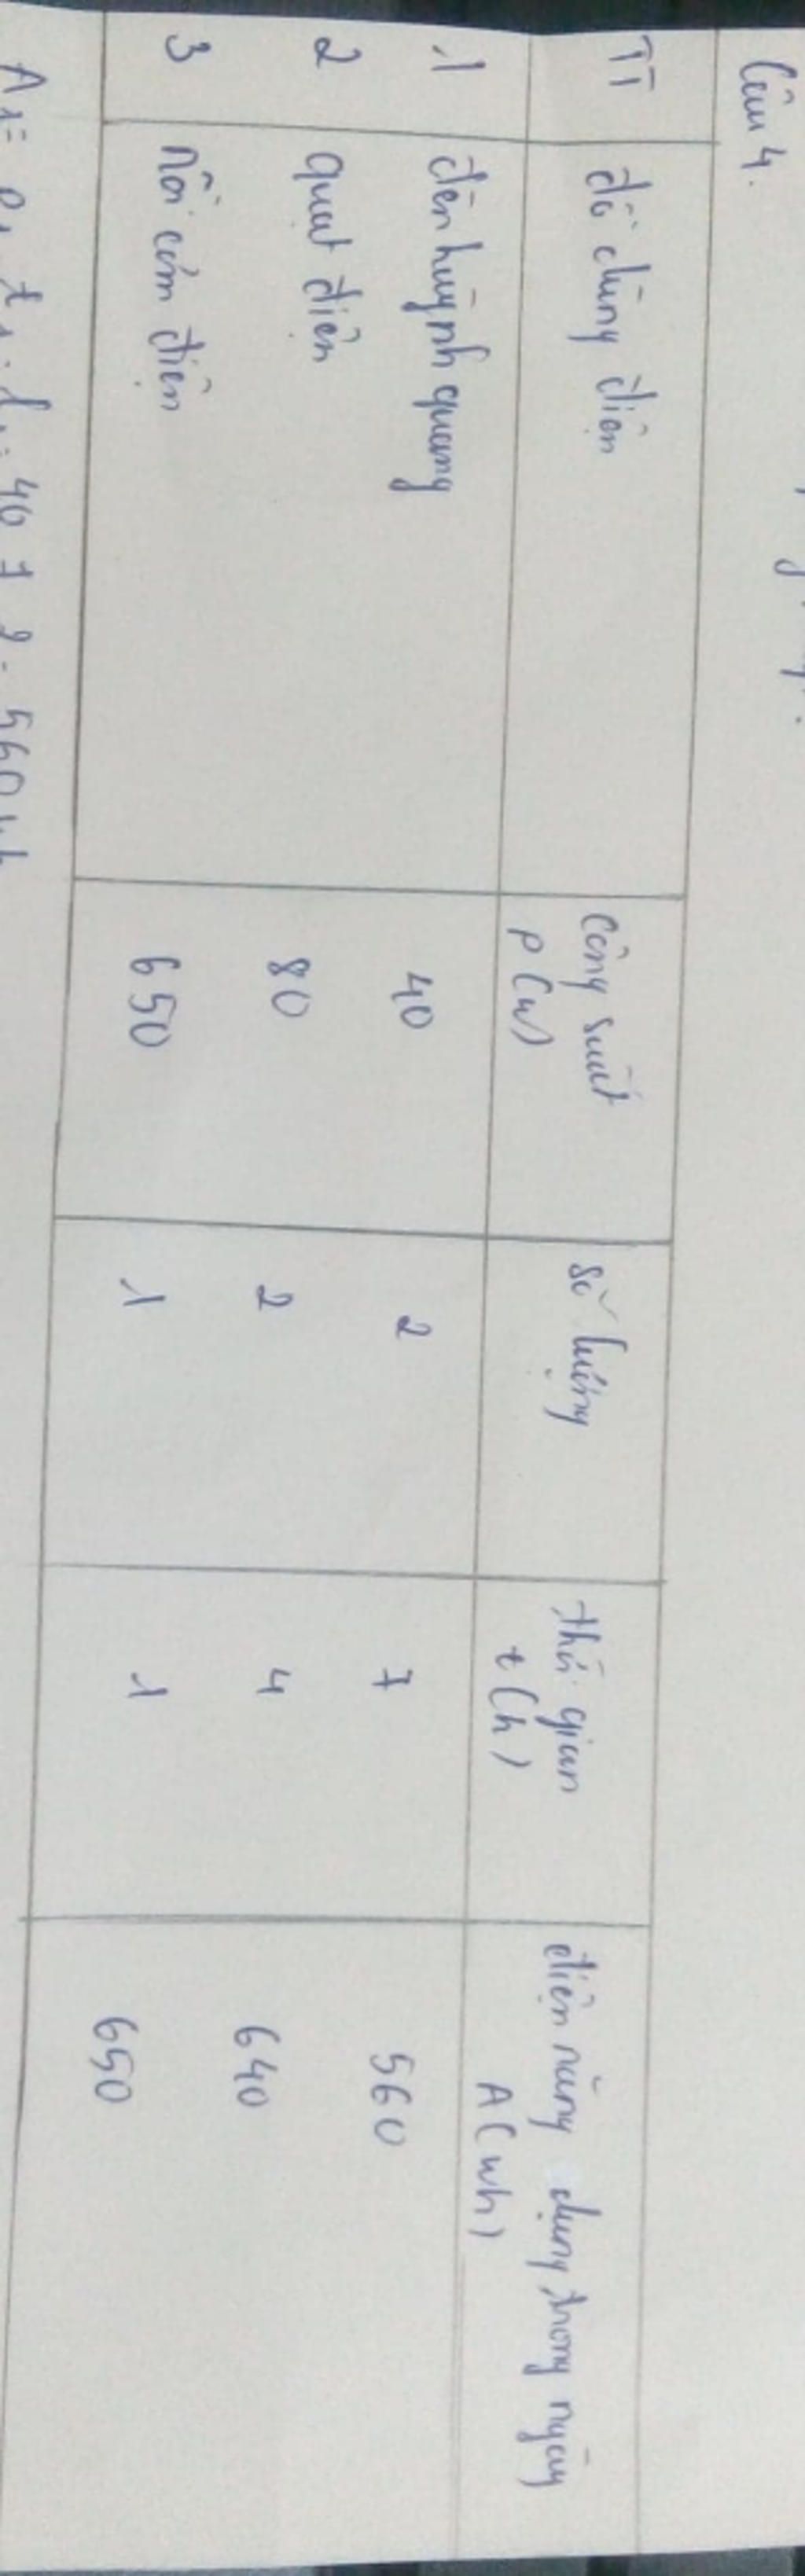 Câu 4.
TT đồ dùng điện Công suất P(w) số lượng thời gian t(h) điện năng dụng trong ngày A(wh)
1 đèn huỳnh quang 40 2 7 560
2 quạt điện 80 2 4 640
3 nồi cơm điện 650 1 1 650
A1=